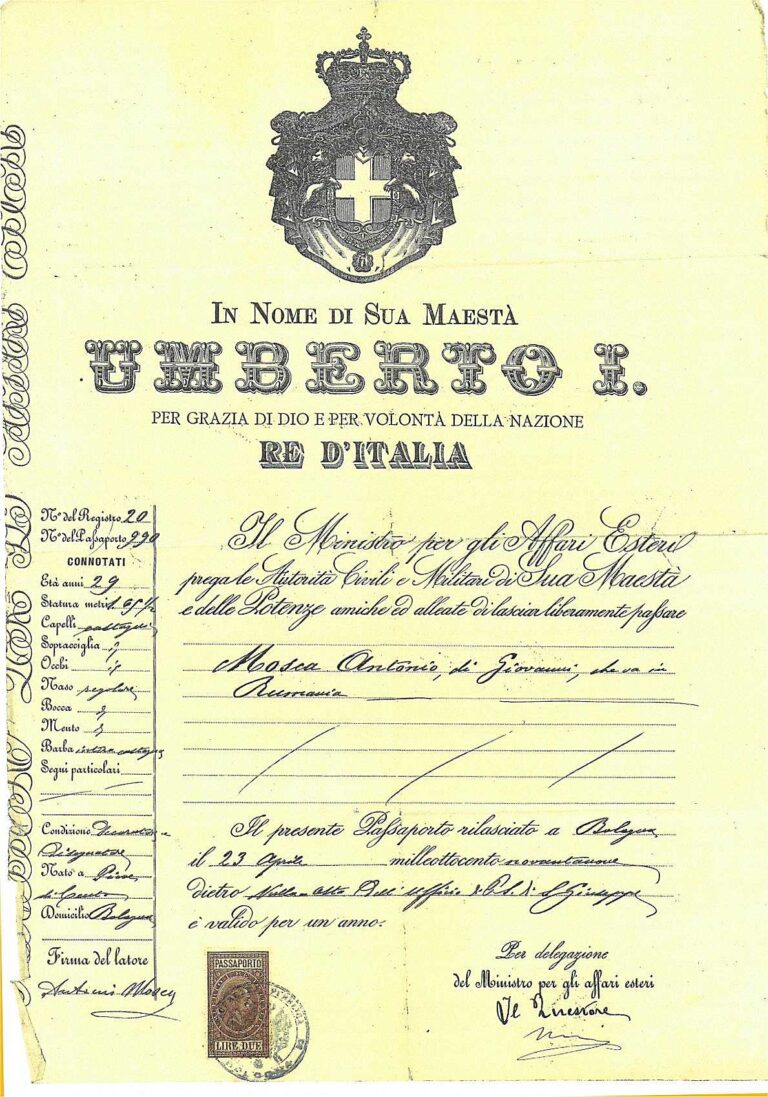 IN NOME DI SUA MAESTÀ
UMBERTO I.
PER GRAZIA DI DIO E PER VOLONTÀ DELLA NAZIONE
RE D'ITALIA
Nº del Registro 20
Nº del Passaporto 990
CONNOTATI
Età anni 29
Statura metri 1.65 ½
Capelli castagni
Sopracciglia
Occhi
Naso regolare
Bocca
Mento
Barba intera castagna
Segni particolari
Condizione Decoratore
Disegnatore
Nato a Pieve
di Cento
Domicilio Bologna
Firma del latore
Antonio Mosca
Il Ministro per gli Affari Esteri
prega le Autorità Civili e Militari di Sua Maestà
e delle Potenze amiche ed alleate di lasciar liberamente passare
Mosca Antonio, di Giovanni, che va in
Rumania
Il presente Passaporto rilasciato a Bologna
il 23 Aprile milleottocento novantanove
dietro Nulla osta dell'Ufficio di P.S. di S. Giuseppe
è valido per un anno.
PASSAPORTO
LIRE DUE
Per delegazione
del Ministro per gli affari esteri
Il Questore